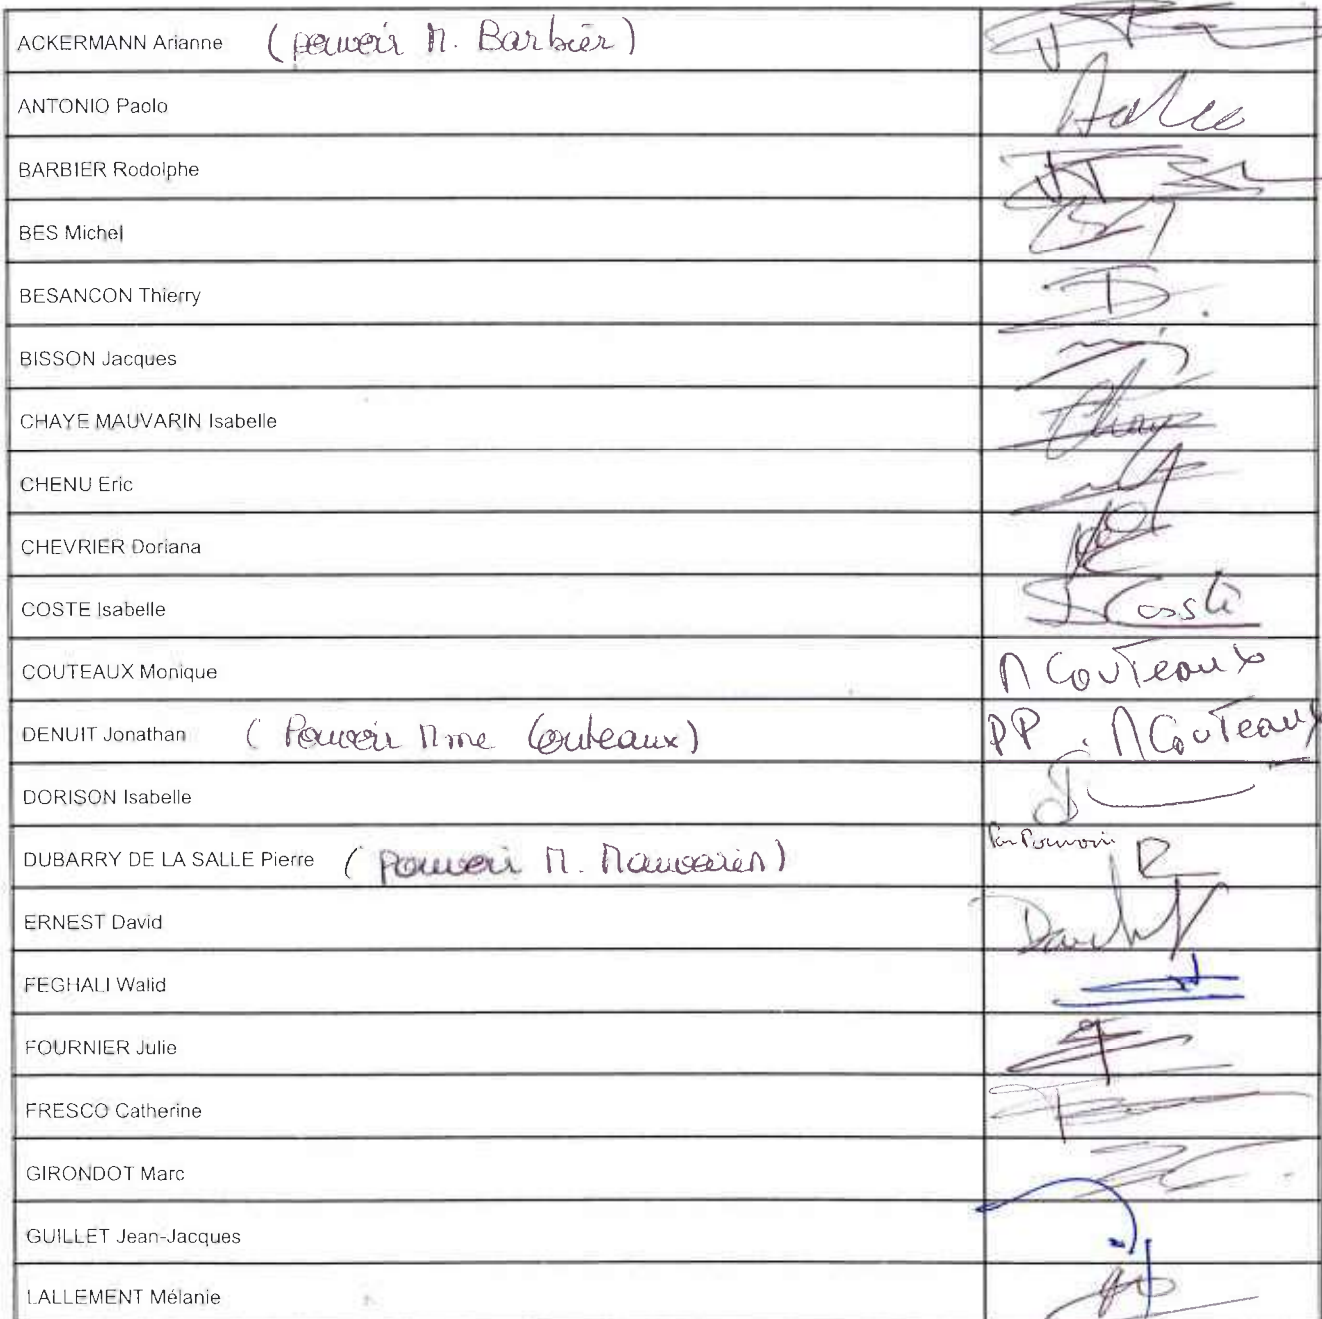 ACKERMANN Arianne (pouvoir M. Barbier)
ANTONIO Paolo
BARBIER Rodolphe
BES Michel
BESANCON Thierry
BISSON Jacques
CHAYE MAUVARIN Isabelle
CHENU Eric
CHEVRIER Doriana
COSTE Isabelle Coste
COUTEAUX Monique M Couteaux
DENUIT Jonathan (Pouvoir Mme Couteaux) PP. M Couteaux
DORISON Isabelle
DUBARRY DE LA SALLE Pierre (pouvoir M. Mauvarin) Par Pouvoir
ERNEST David
FEGHALI Walid
FOURNIER Julie
FRESCO Catherine
GIRONDOT Marc
GUILLET Jean-Jacques
LALLEMENT Mélanie